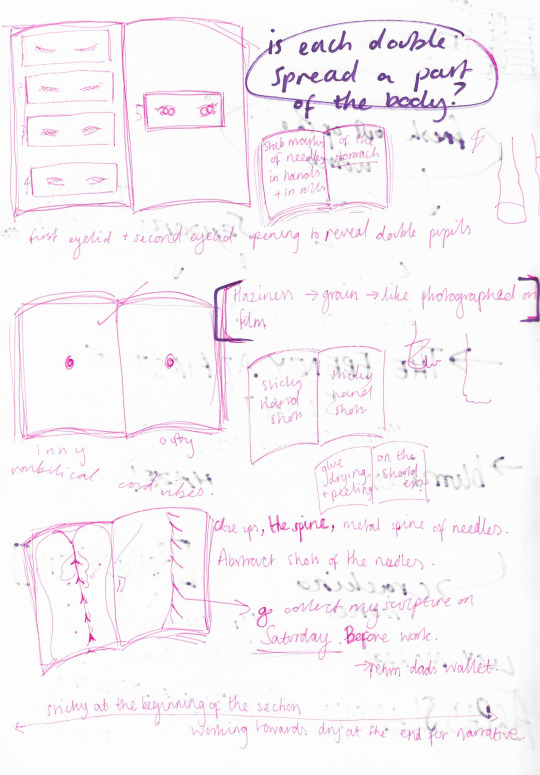 is each double
spread a part
of the body?
5
4
of needles
in hands
+ in rolls
of the
stomach
first eyelid + second eyelid opening to reveal double pupils
Haziness → grain → like photographed on
film
inny
outy
umbilical cord vibes.
sticky
hand
shots
sticky
hand
shots.
glue
drying
+ peeling
on the
should
ers.
close ups, the spine, metal spine of needles.
Abstract shots of the needles.
go collect my sculpture on
Saturday. Before work.
→ return dads wallet.
sticky at the beginning of the section
working towards dry at the end for narrative.